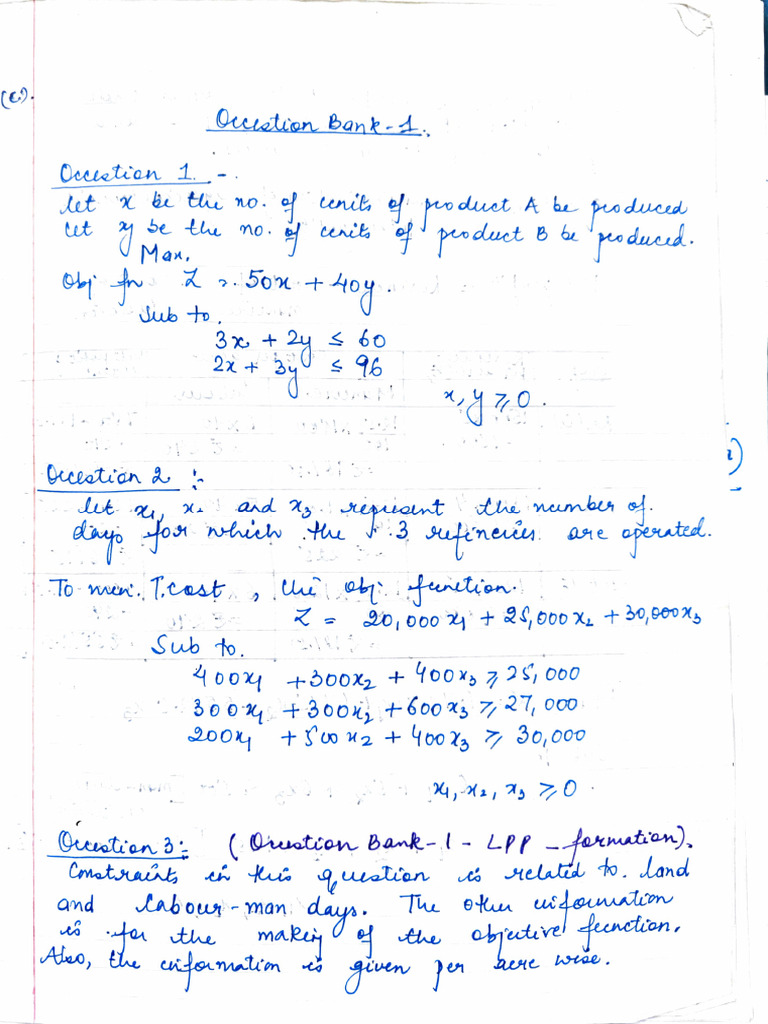 (c).
Question Bank-1.
Question 1. -.
let x be the no. of units of product A be produced
let y be the no. of units of product B be produced.
Max.
Obj fn Z = 50x + 40y.
Sub to.
3x + 2y ≤ 60
2x + 3y ≤ 96
x, y ≥ 0.
Question 2 :-
let x1, x2 and x3 represent the number of
days for which the 3 refineries are operated.
To min. T.cost, the obj function.
Z = 20,000x1 + 25,000x2 + 30,000x3
Sub to.
400x1 + 300x2 + 400x3 ≥ 25,000
300x1 + 300x2 + 600x3 ≥ 27,000
200x1 + 500x2 + 400x3 ≥ 30,000
x1, x2, x3 ≥ 0.
Question 3:- (Question Bank-1 - LPP - formation).
Constraints in this question is related to land
and labour-man days. The other information
is for the making of the objective function.
Also, the information is given per acre wise.